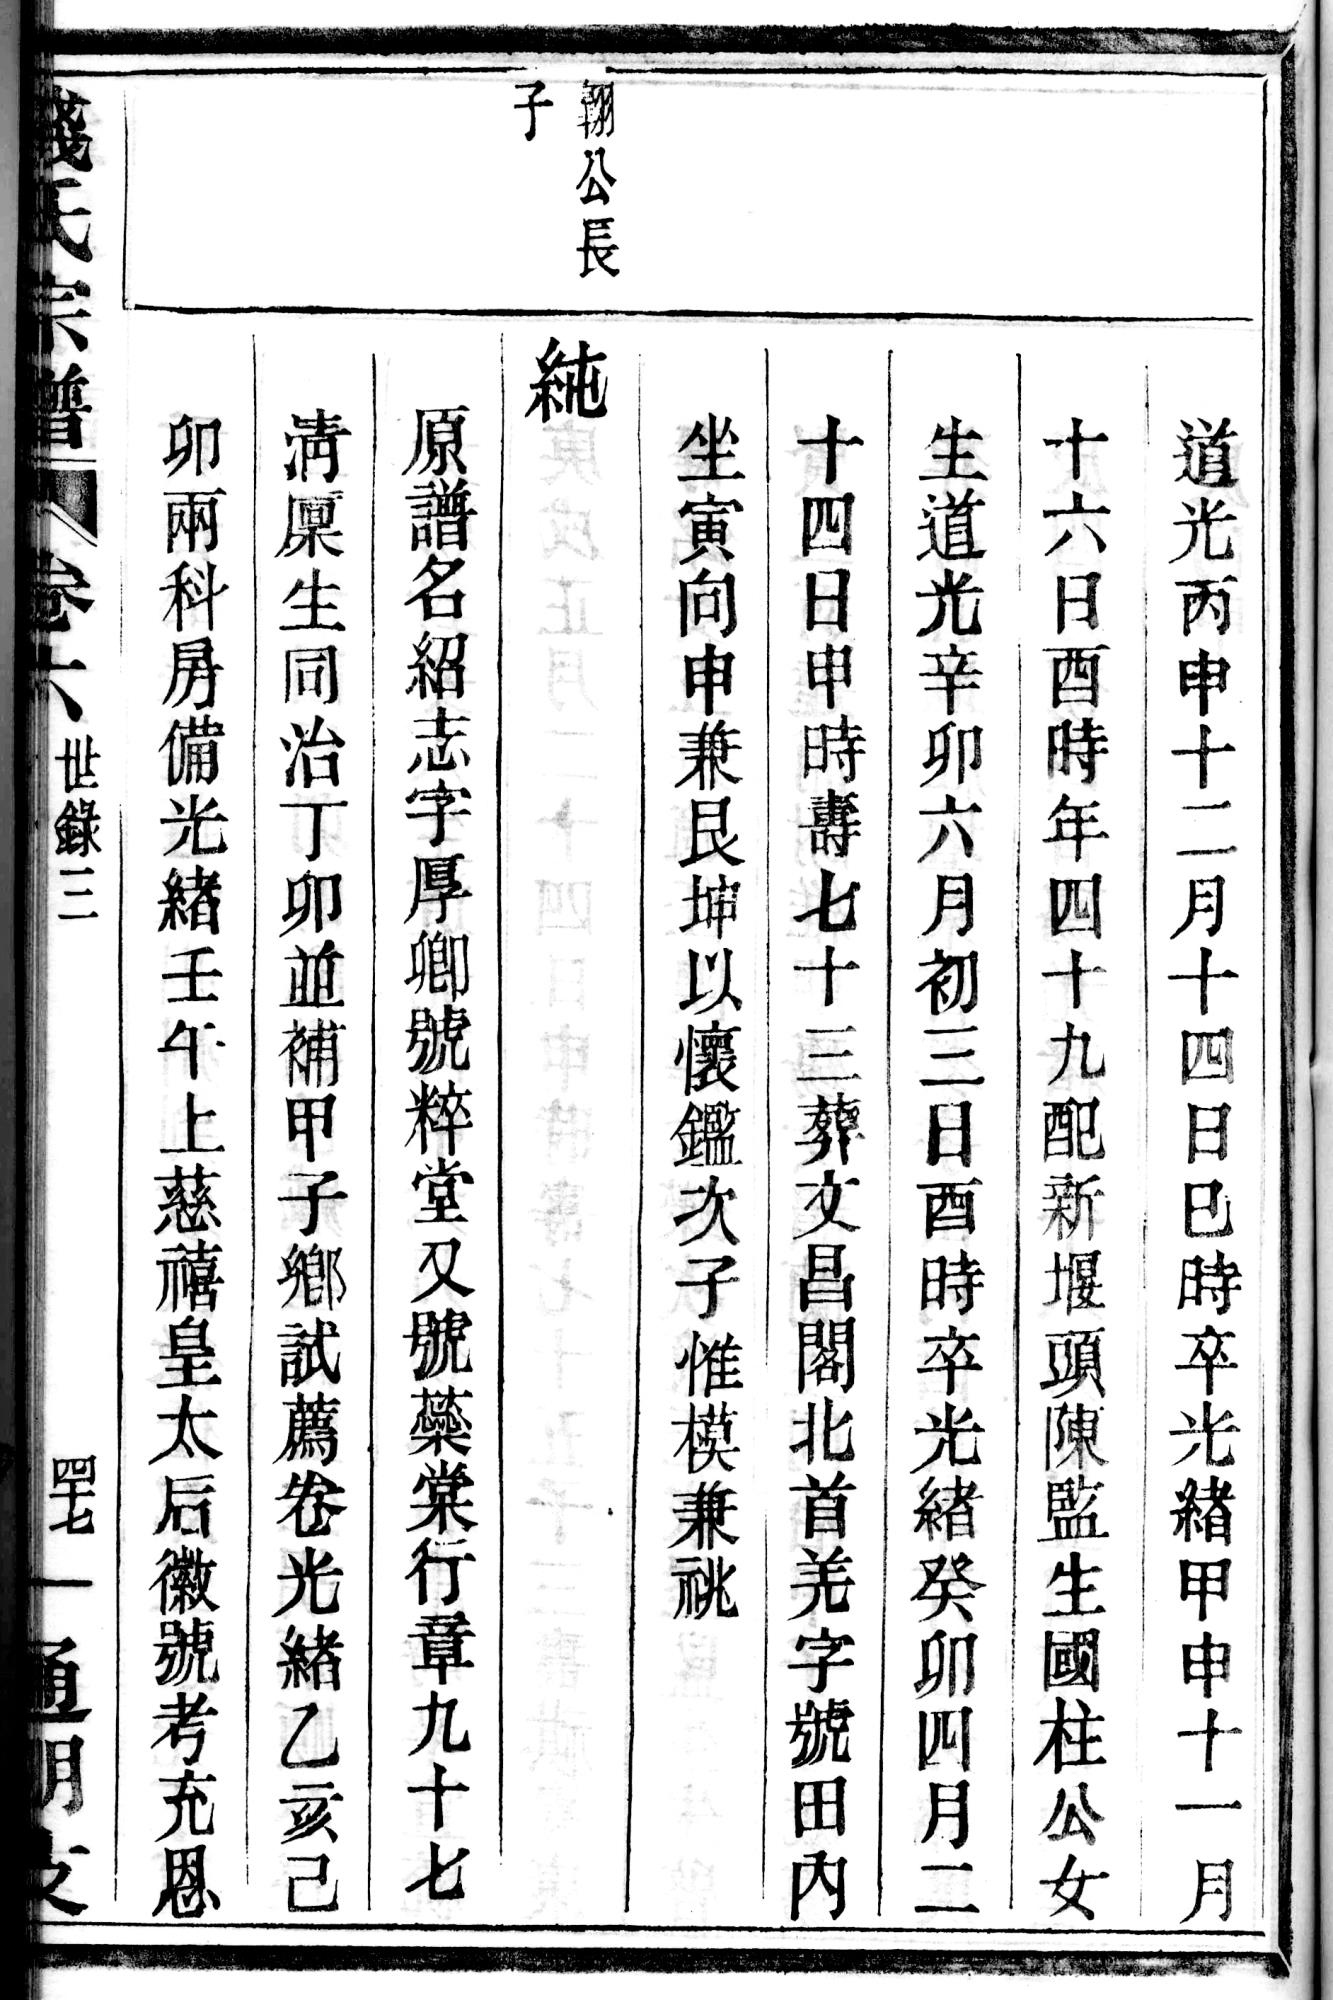 道光丙申十二月十四日巳時卒光緒甲申十一月
十六日酉時年四十九配新堰頭陳監生國柱公女
生道光辛卯六月初三日酉時卒光緒癸卯四月二
十四日申時壽七十三葬文昌閣北首羌字號田內
坐寅向申兼艮坤以懷鑑次子惟模兼祧
翰公長
子
純
原譜名紹志字厚卿號粹堂又號蘂棠行章九十七
淸廩生同治丁卯並補甲子鄉試薦卷光緒乙亥己
卯兩科房備光緒壬午上慈禧皇太后徽號考充恩
錢氏宗譜
卷六
世錄三
四十七
通明支